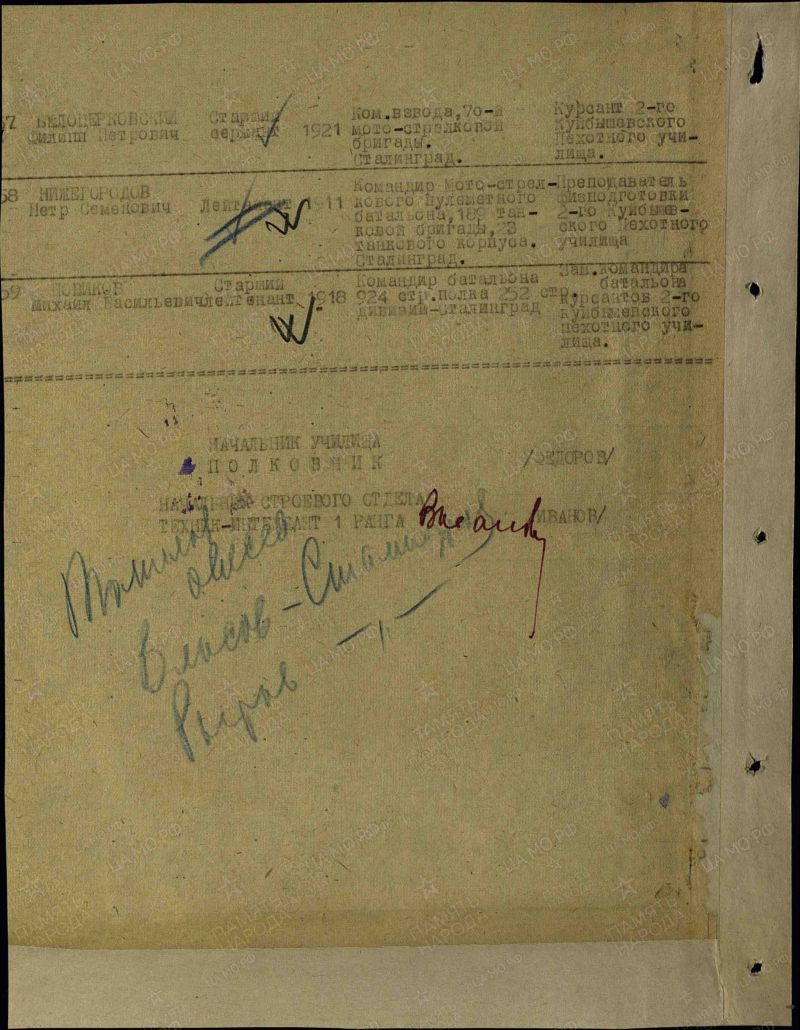 57 БЕЛОЦЕРКОВСКИЙ Старший 1921 Ком.взвода,70-й Курсант 2-го
Филипп Петрович сержант мото-стрелковой Куйбышевского
бригады. Пехотного учи-
Сталинград. лища.
58 НИЖЕГОРОДОВ Лейтенант 1911 Командир Мото-стрел- Преподаватель
Петр Семенович кового пулеметного физподготовки
батальона,189 тан- 2-го Куйбышев-
ковой бригады,23 ского Пехотного
танкового корпуса. училища
Сталинград.
59 НОВИКОВ Старший 1918 Командир батальона Зам.командира
Михаил Васильевич лейтенант 924 стр.полка 252 стр. батальона
дивизии-Сталинград курсантов 2-го
куйбышевского
пехотного учи-
лища.
НАЧАЛЬНИК УЧИЛИЩА
ПОЛКОВНИК /ФЕДОРОВ/
НАЧАЛЬНИК СТРОЕВОГО ОТДЕЛА
ТЕХНИК-ИНТЕНДАНТ 1 РАНГА ИВАНОВ/
Власов - Сталинград
ПАМЯТЬ НАРОДА
ЦА МО.РФ